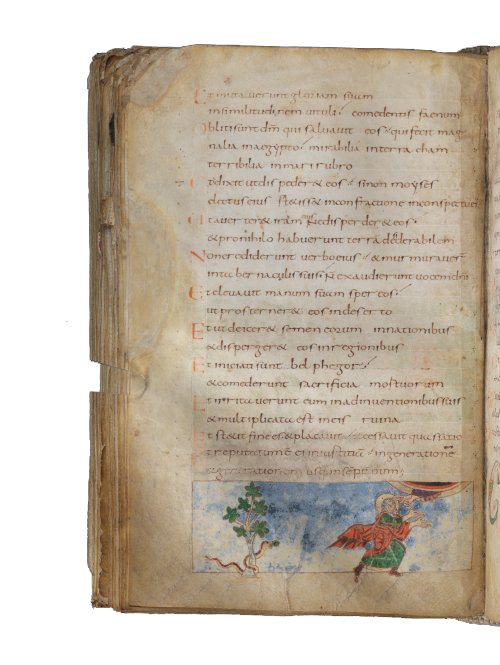 Et mutaverunt gloriam suam
in similitudinem vituli comedentis faenum
Obliti sunt dm qui salvavit eos qui fecit mag
nalia in aegypto mirabilia in terra cham
terribilia in mari rubro
Et dixit ut disperder& eos si non moyses
electus eius st&iss& in confractione in conspectu ei
Ut averter& iram ne disperder& eos
& pro nihilo habuerunt terra desiderabilem
Non crediderunt verbo eius & murmuraver
in tabernaculis suis N exaudierunt vocem dni
Et elevavit manum suam super eos
ut prosterner& eos in deserto
Et ut deicer& semen eorum in nationibus
& disperger& eos in regionibus
Et initiati sunt belphegor
& comederunt sacrificia mortuorum
Et irritaverunt eum in adinventionibus suis
& multiplicata est in eis ruina
Et st&it finees & placavit & cessavit quassatio
Et reputatum e ei in iustitia in generatione
& generationem usq in sempiternum